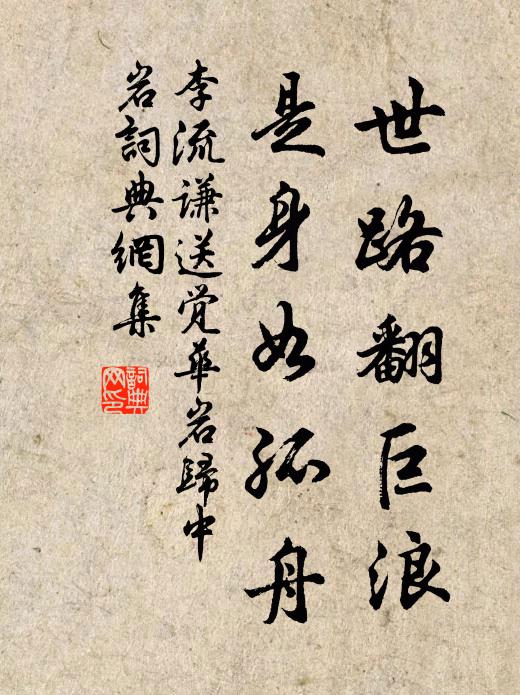 世路翻巨浪
是身如孤舟
李流谦送觉华岩歸中
岩詞典網集
詞典網印